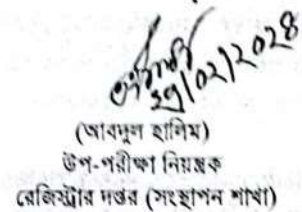 ২৯/০২/২০২৪
(আবদুল হালিম)
উপ-পরীক্ষা নিয়ন্ত্রক
রেজিস্ট্রার দপ্তর (সংস্থাপন শাখা)